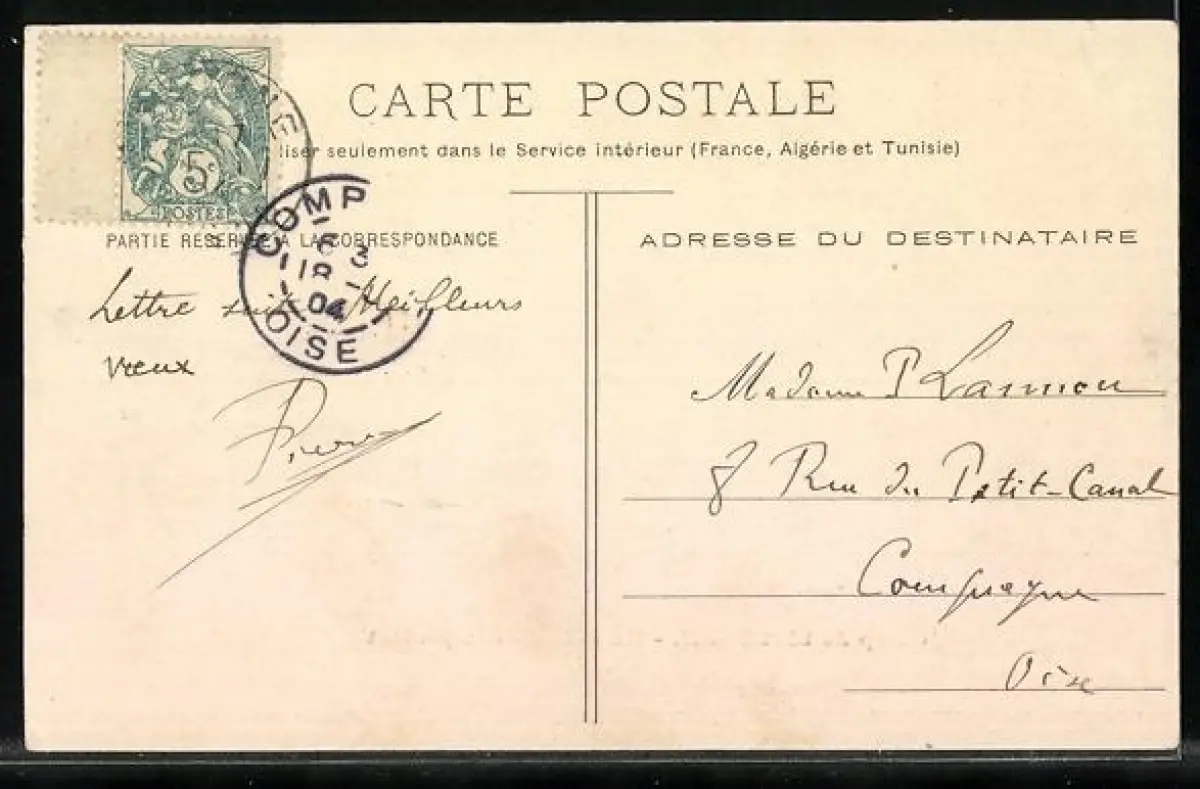 CARTE POSTALE
liser seulement dans le Service intérieur (France, Algérie et Tunisie)
5c
POSTES
NE
COMP
6 3
18
04
OISE
PARTIE RÉSERVÉE A LA CORRESPONDANCE
ADRESSE DU DESTINATAIRE
Lettre suit Meilleurs
vœux
Pierre
Madame P Lannou
8 Rue du Petit-Canal
Compiegne
Oise